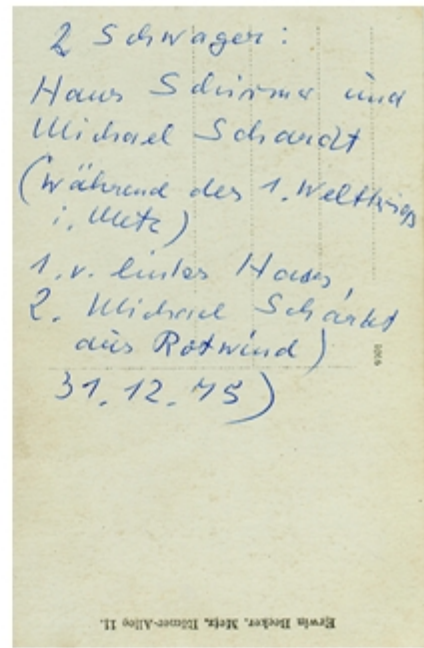 2 Schwager:
Hans Schirmer und
Michael Schardt
(während des 1. Weltkriegs
i. Metz)
1. v. links Hans,
2. Michael Schardt
aus Rotwind)
31.12.75)
Erwin Becker, Metz, Römer-Allee 11.